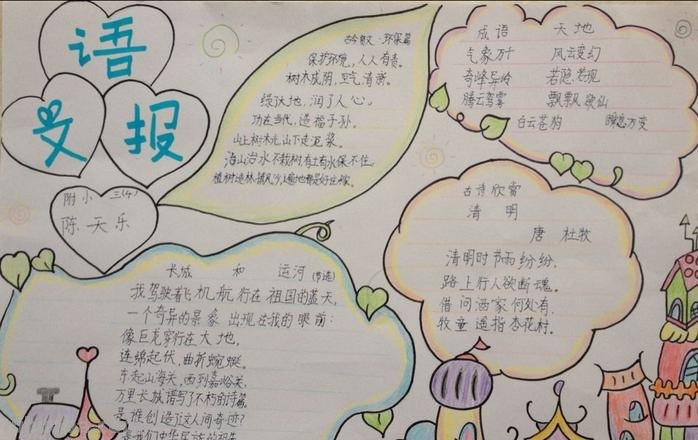 语
文 报
附小 三(4)
陈天乐
古今歌文·环保篇
保护环境,人人有责。
树木成阴,空气清新。
绿了大地,润了人心。
功在当代,造福子孙。
山上树木光山下走泥浆。
治山治水不栽树有土有水保不住。
成语 天地
气象万千 风云变幻
奇峰异岭 若隐若现
腾云驾雾 飘飘欲仙
白云苍狗 瞬息万变
古诗欣赏
清明
唐 杜牧
清明时节雨纷纷,
路上行人欲断魂。
借问酒家何处有,
牧童遥指杏花村。
长城 和 运河(节选)
我驾驶着飞机航行在祖国的蓝天,
一个奇异的景象出现在我的眼前:
像巨龙穿行在大地,
连绵起伏,曲折蜿蜒。
东起山海关,西到嘉峪关,
万里长城谱写了不朽的诗篇。
是谁创造了这人间奇迹?
是我们中华民族的祖先